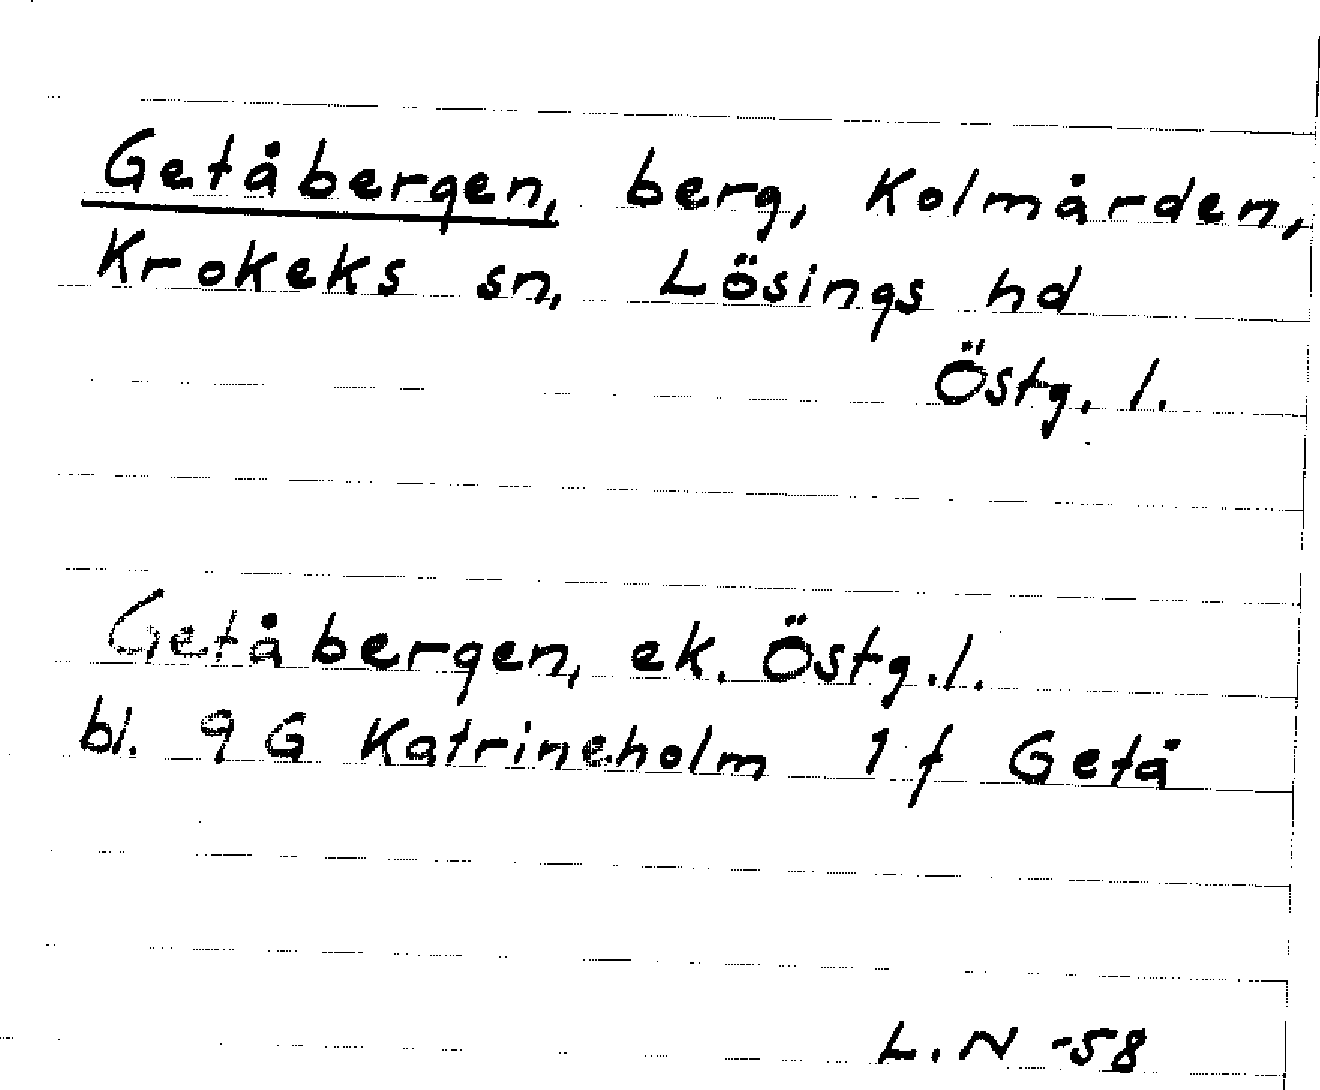 Getåbergen, berg, Kolmården,
Krokeks sn, Lösings hd
Östg. l.
Getåbergen, ek. Östg. l.
bl. 9 G Katrineholm 1 f Getå
L. N -58